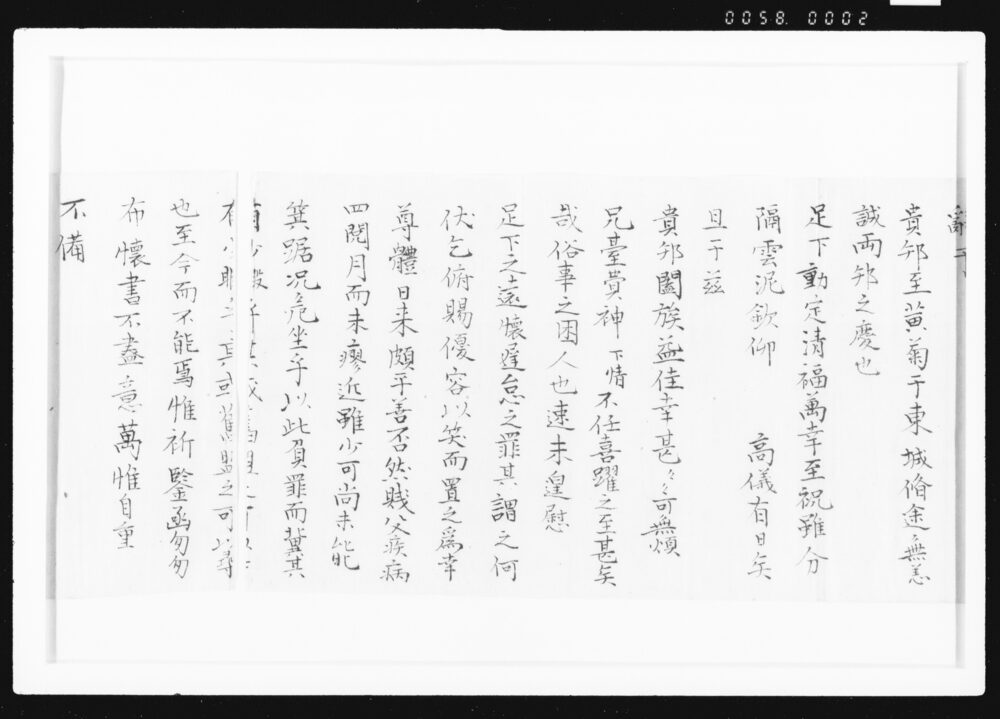 0058. 0002
辭于
貴邦至黄菊于東城脩途無恙
誠両邦之慶也
足下動定清福萬幸至祝雖分
隔雲泥欽仰 高儀有日矣
且于茲
貴邦闔族益佳幸甚々可無煩
兄臺貴神下情不任喜躍之至甚矣
哉俗事之困人也速未遑慰
足下之遠懐遅怠之罪其謂之何
伏乞俯賜優容以笑而置之為幸
尊體日来頗平善否然賤父疾病
四閲月而未瘳近雖少可尚未能
箕踞况危坐乎以此負罪而冀其
有少
也至今而不能焉惟祈鑒函匆匆
布懐書不盡意萬惟自重
不備